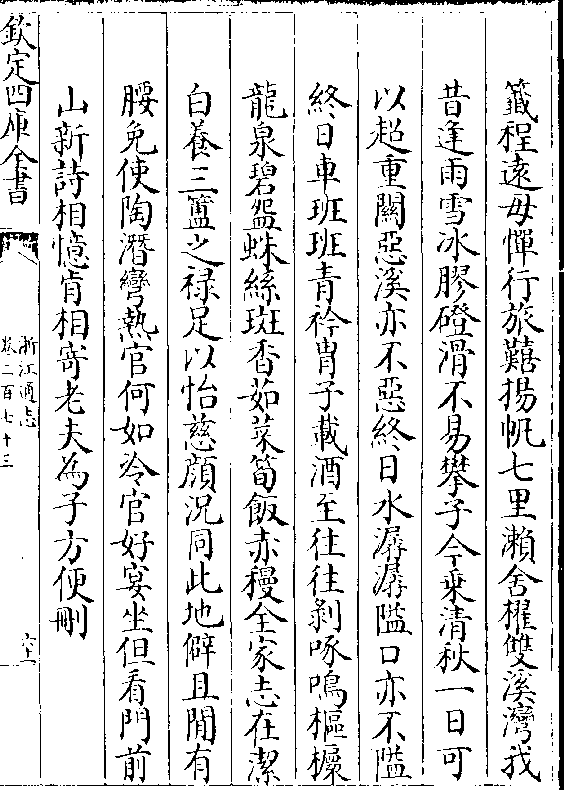 籤程遠毋憚行旅囏揚帆七里瀨舍櫂雙溪灣我
昔逢雨雪冰膠磴滑不易攀子今乗清秋一日可
以超重關惡溪亦不惡終日水潺潺隘口亦不隘
終日車班班青衿胄子載酒至徃徃剥啄鳴樞䥫
龍泉碧盌蛛絲斑香茹菜筍飯赤稷全家志在潔
白養三簋之禄足以怡慈顔況同此地僻且閒有
腰免使陶潛彎熱官何如冷官好宴坐但看門前
山新詩相憶肯相寄老夫為子方便刪
欽定四庫全書
浙江通志
卷二百七十三
六十一